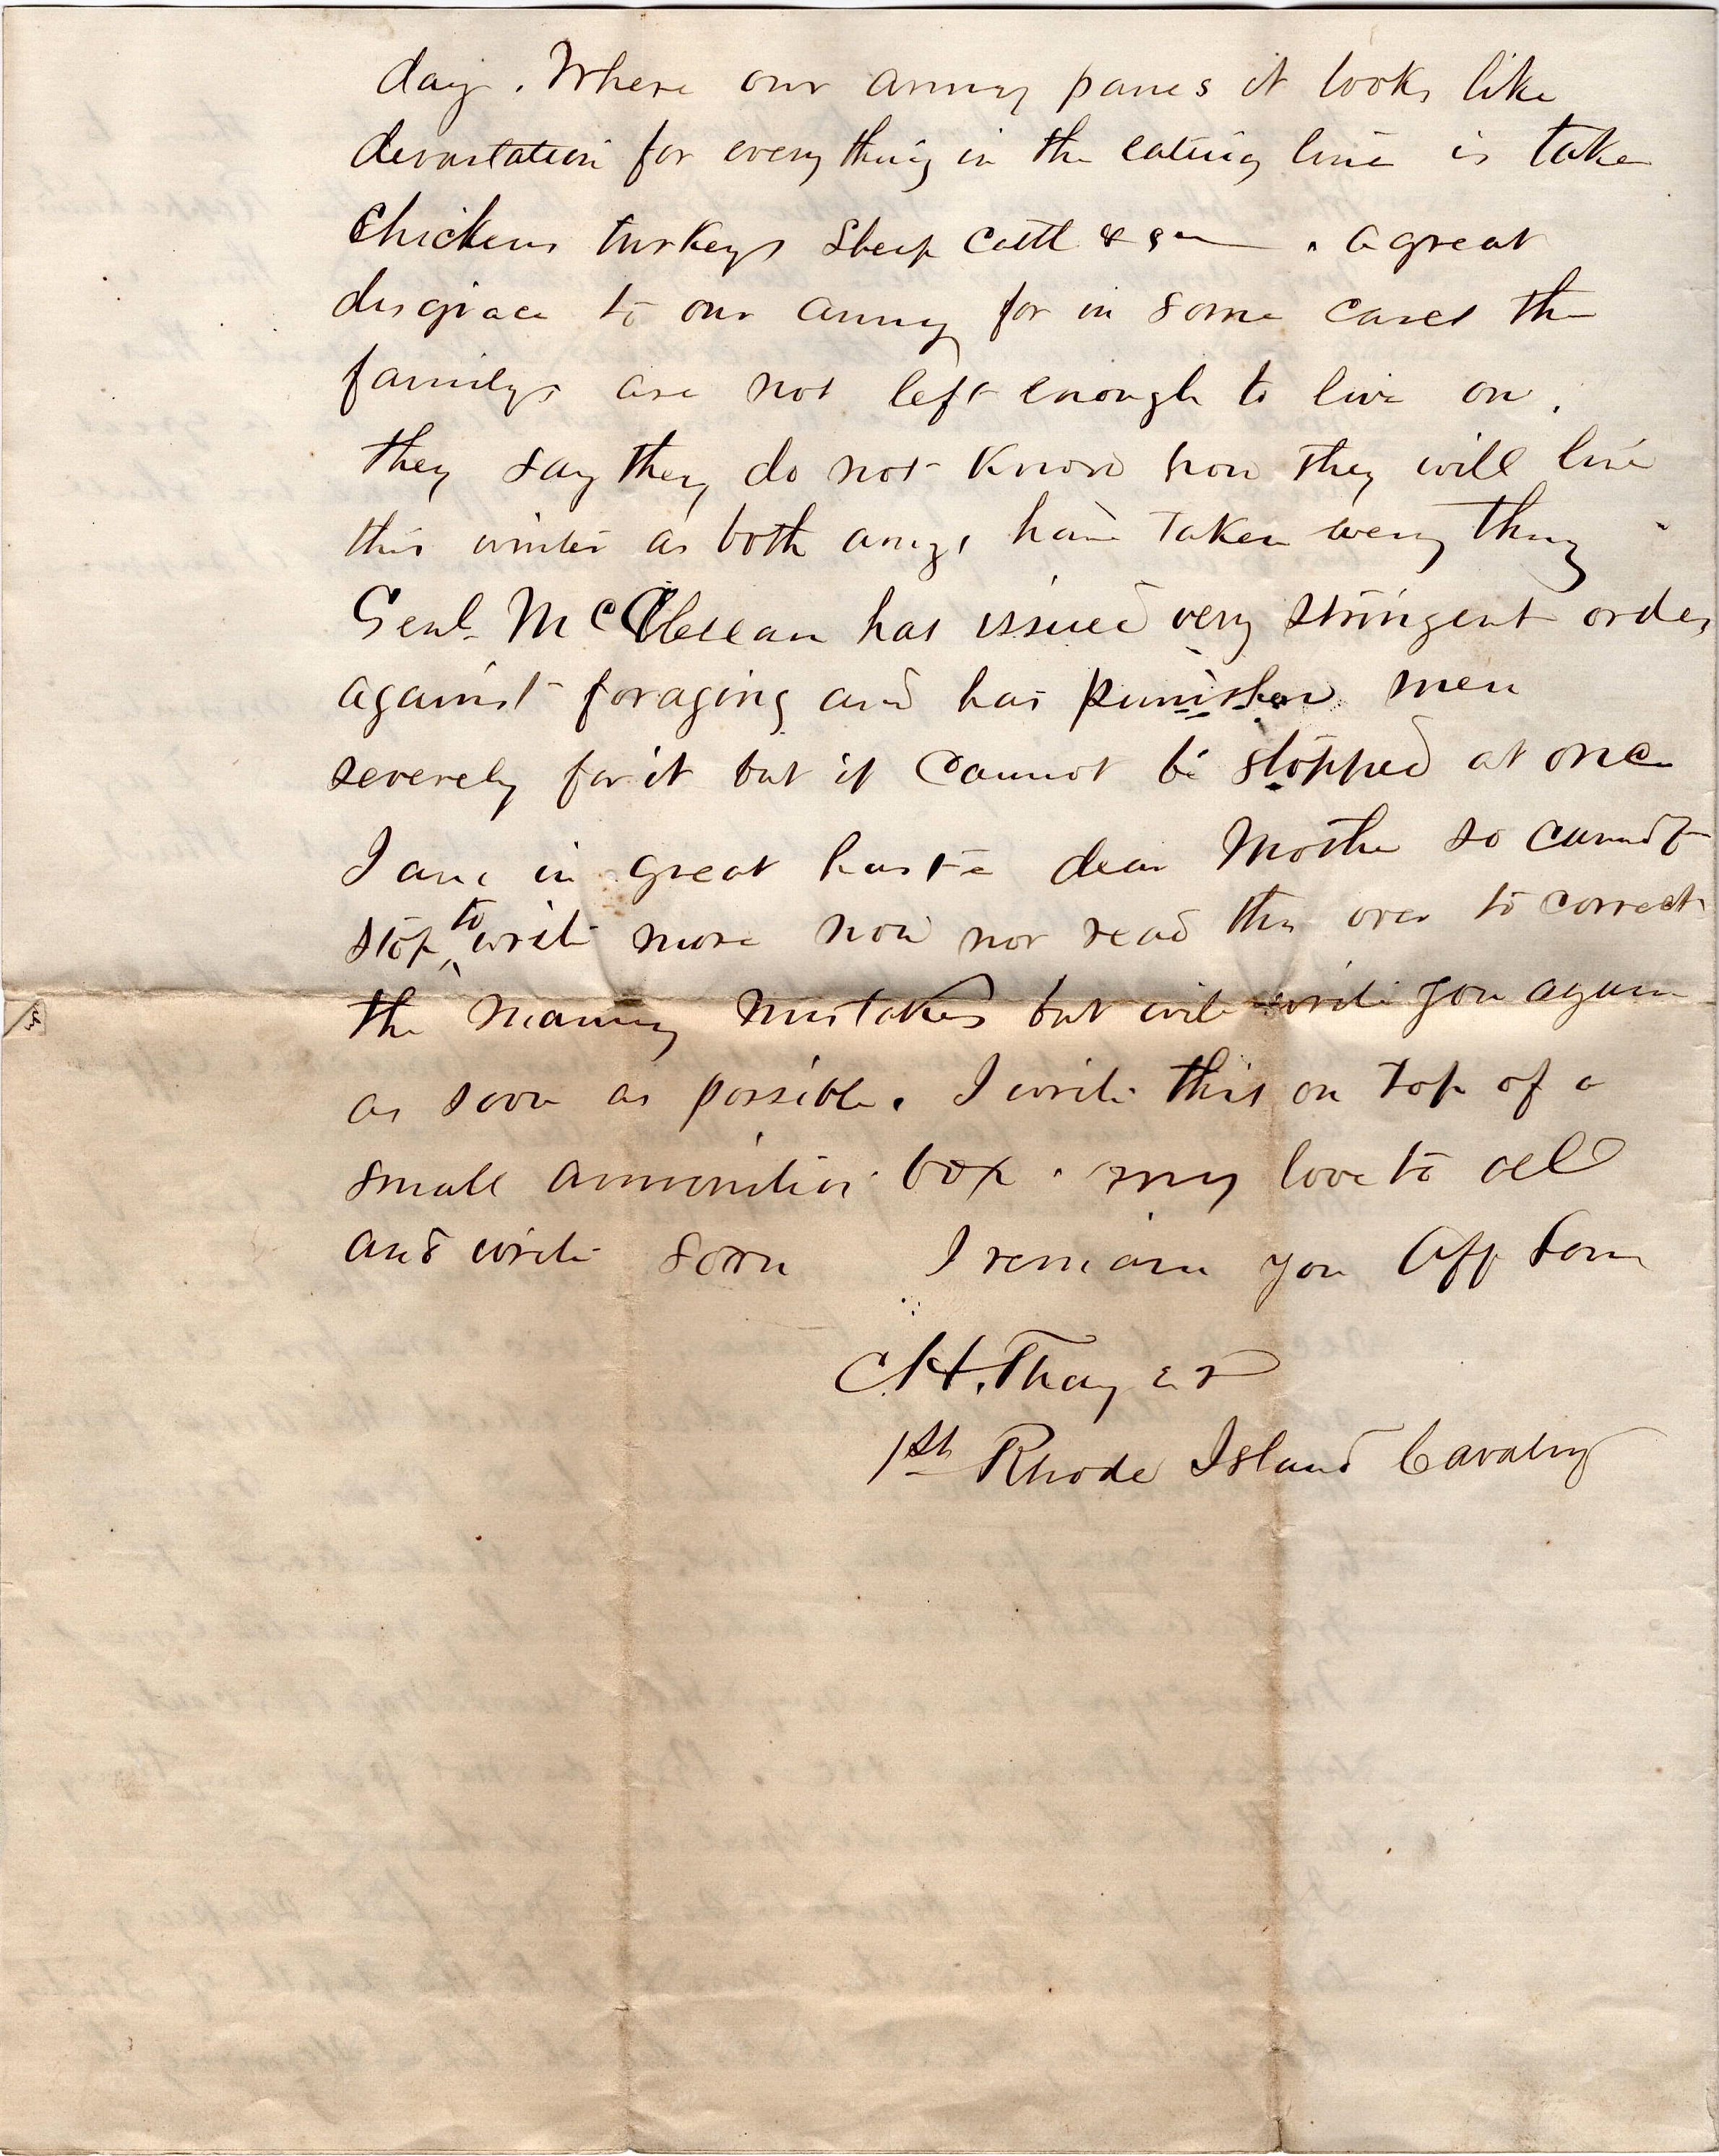 day. Where our army passes it looks like
devastation for every thing in the eating line is take
Chickens turkeys Sheep Cattl & &c . a great
disgrace to our army for in some cases the
familys are not left enough to live on.
they say they do not know how they will live
this winter as both armys have taken every thing
Genl. McClellan has issued very stringent orders
against foraging and has punished men
severely for it but it cannot be stopped at once
I am in great haste dear Mother so cannot
stop to write more now nor read this over to correct
the manny mistakes but will write you again
as soon as possible. I write this on top of a
small ammunition box. my love to all
and write soon I remain you Aff Son
C.H. Thayer
1st Rhode Island Cavalry